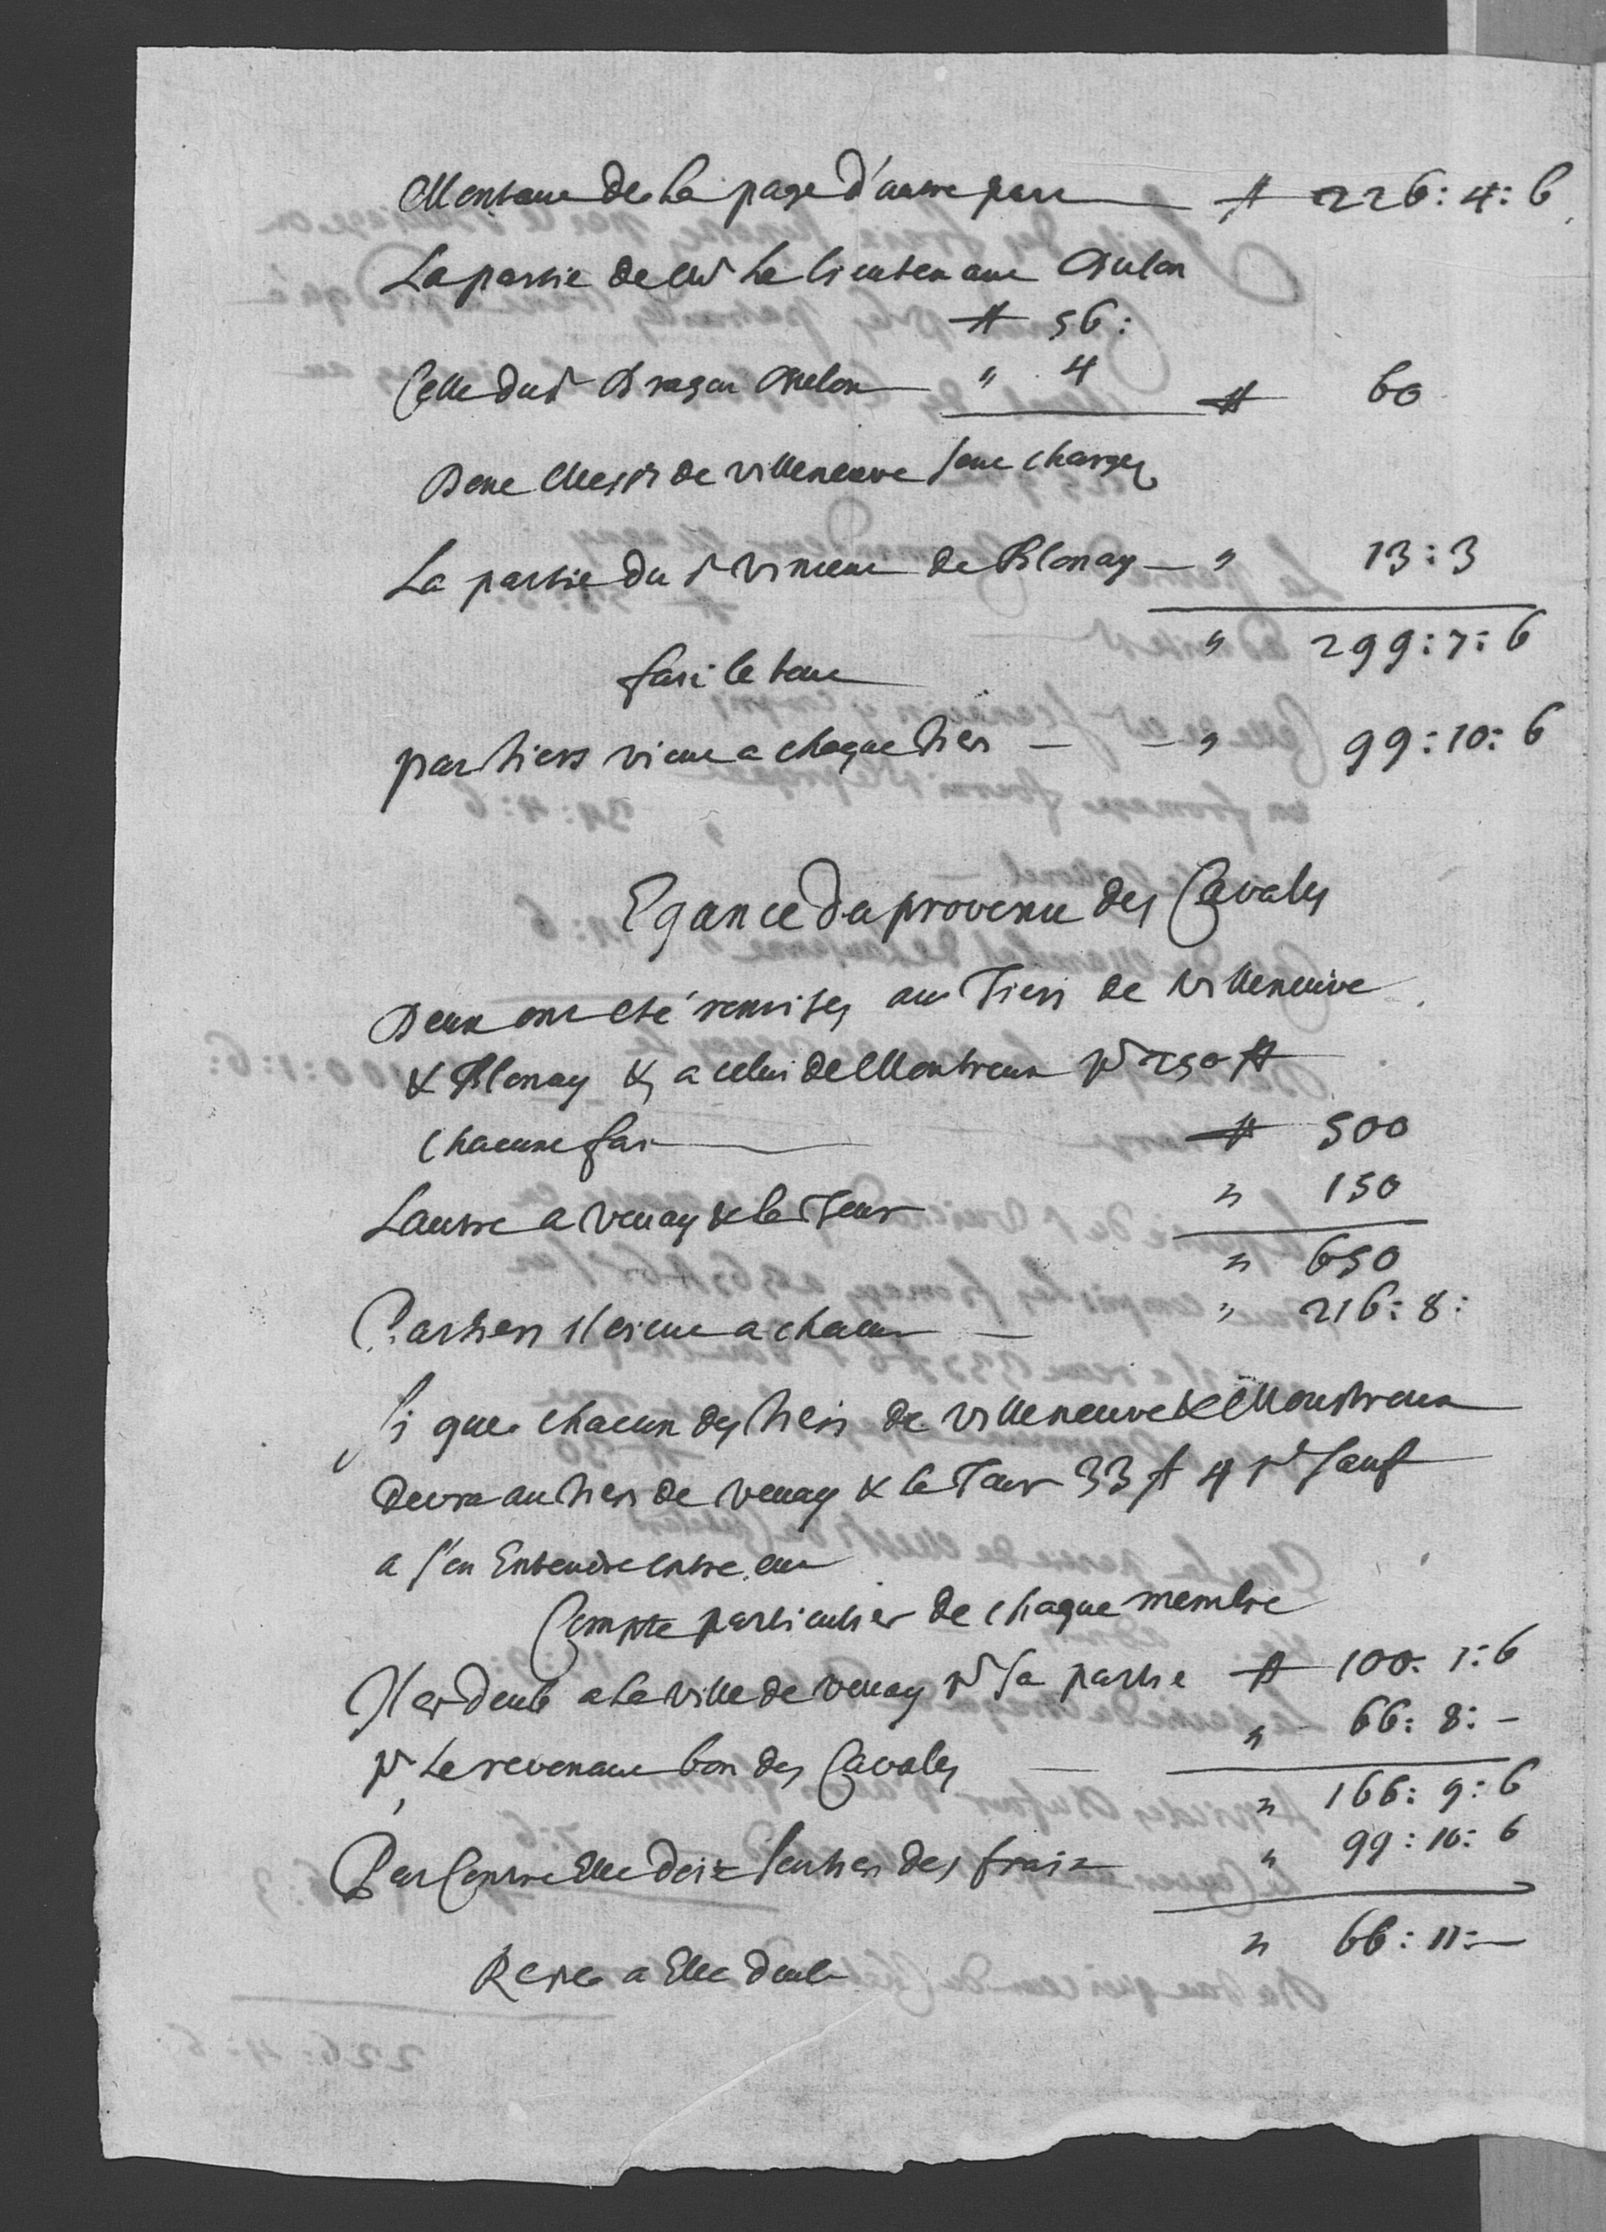 Montant de la page d'autre part ff 226 : 4 : 6
La partie de Mr le lieutenant Chulon
ff 56 :
Celle du Sr Dragon Chulon " 4 ff 60
Dont Messrs de Villeneuve sont chargez
La partie du Sr Vincent de Blonay — " 13 : 3
fait le tout " 299 : 7 : 6
par tiers vient a chaque tiers — — " 99 : 10 : 6
Egance du provenu des Cavales
Deux ont été remises aux Tiers de Villeneuve
& Blonay & a celui de Montreux pr 250 ff
chacune fait ff 500
Lautre a Vevay & la Tour " 150
" 650
Par tiers il vient a chacun — " 216 : 8 :
Si que chacun des tiers de Villeneuve & Moustreux
devra au tiers de Vevay & la Tour 33 ff 4 s sauf
a s'en Entendre entre eux
Compte particulier de chaque membre
Il est deub a la Ville de Vevay pr sa partie ff 100 : 1 : 6
pr Le revenant bon des Cavales — " 66 : 8 : —
" 166 : 9 : 6
Par Contre Elle doit sur tiers des frais " 99 : 10 : 6
Reste a Elle deub " 66 : 11 : —